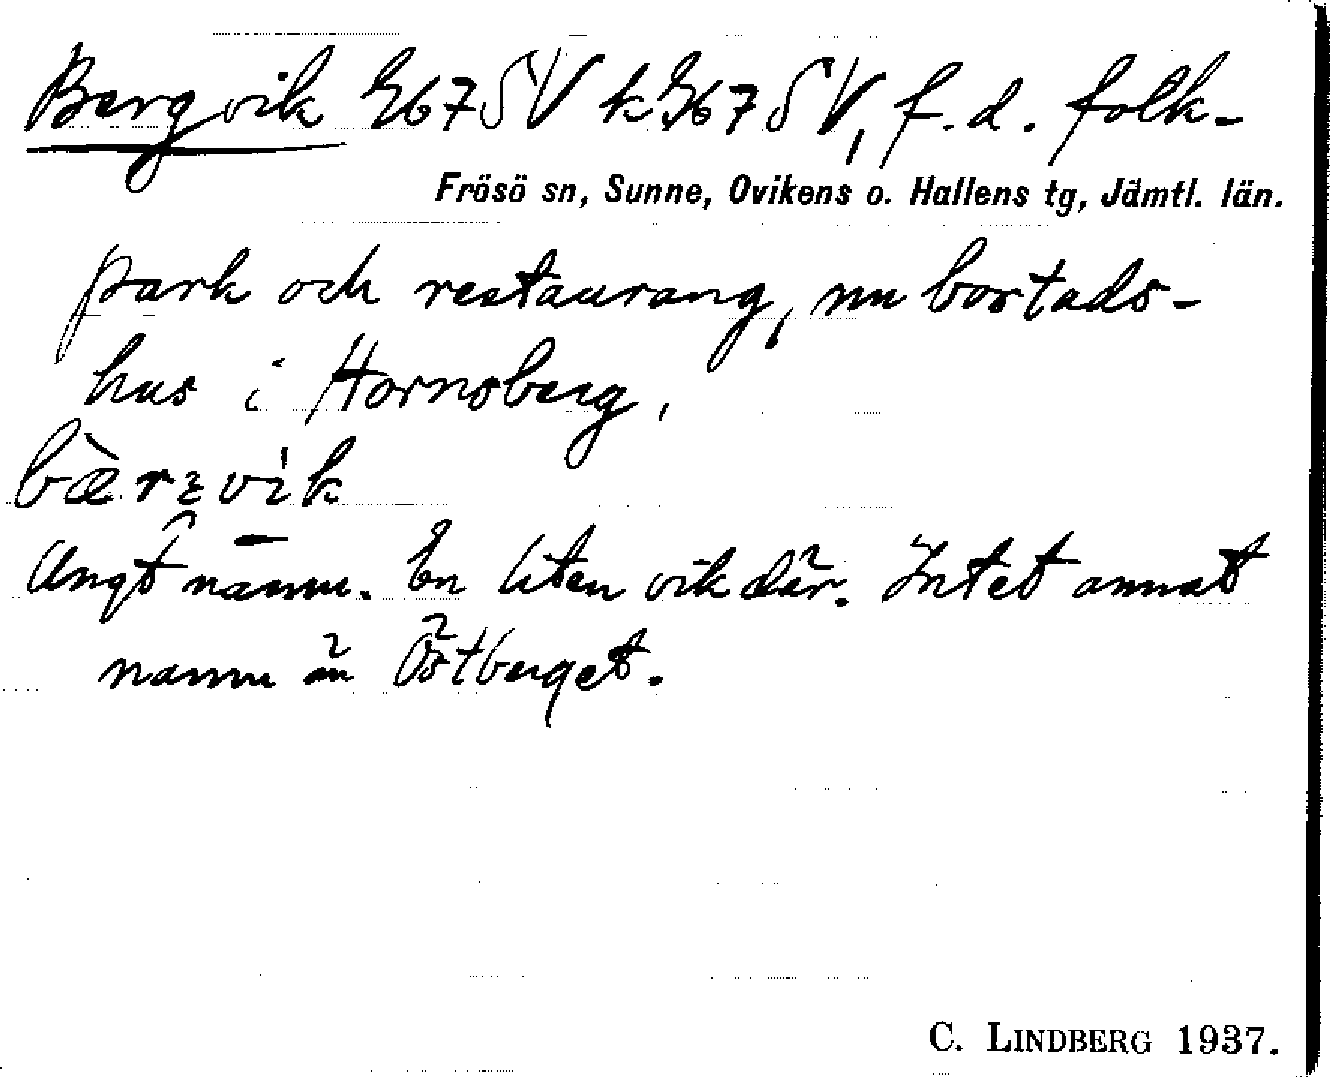 Bergvik E67SV k E67SV, f.d. folk-
Frösö sn, Sunne, Ovikens o. Hallens tg, Jämtl. län.
park och restaurang, nu bostads-
hus i Hornsberg,
bærɛvik
Ungt namn. En liten vik där. Intet annat
namn än Östberget.
C. LINDBERG 1937.